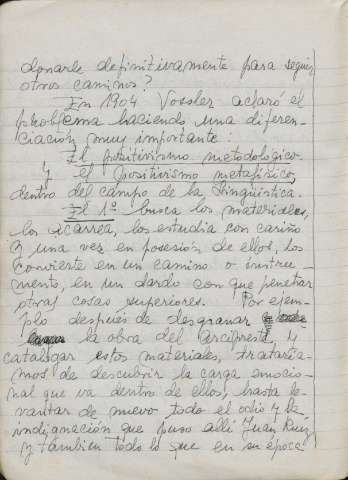 donarle definitivamente para seguir
otros caminos?
En 1904 Vossler aclaró el
problema haciendo una diferen-
ciación muy importante:
El positivismo metodológico
y el positivismo metafísico,
dentro del campo de la Lingüística.
El 1º busca los materiales,
los acarrea, los estudia con cariño
y una vez en posesión de ellos, los
convierte en un camino o instru-
mento, en un dardo con que penetrar
otras cosas superiores. Por ejem-
plo después de desgranar
la obra del Arcipreste, y
catalogar estos materiales, trataría-
mos de descubrir la carga emocio-
nal que va dentro de ellos, hasta le-
vantar de nuevo todo el odio y la
indignación que puso allí Juan Ruiz
y también todo lo que en su época